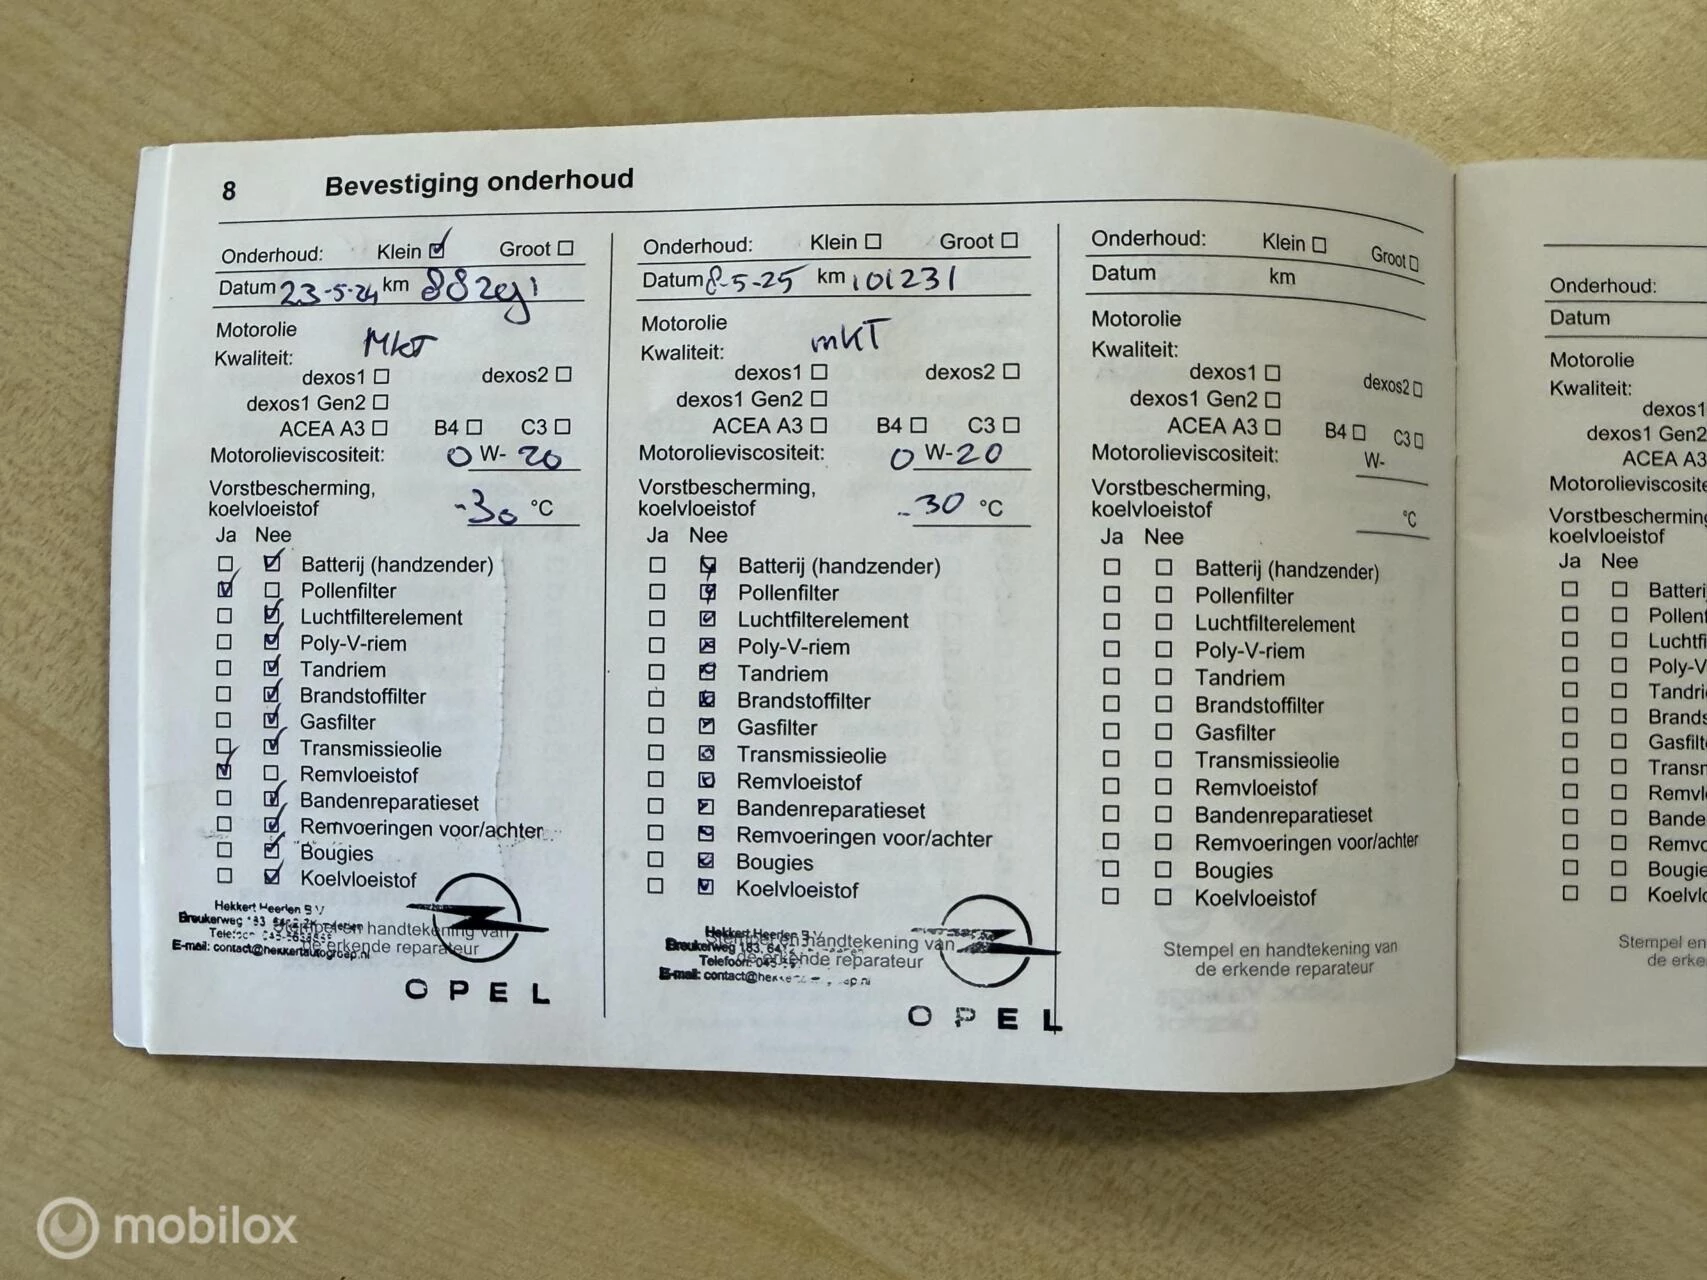 8 Bevestiging onderhoud
Onderhoud: Klein Groot
Datum 23-5-24 km
Motorolie
Kwaliteit: MKT
dexos1 dexos2
dexos1 Gen2
ACEA A3 B4 C3
Motorolieviscositeit: 0 W- 20
Vorstbescherming,
koelvloeistof -30 °C
Ja Nee
Batterij (handzender)
Pollenfilter
Luchtfilterelement
Poly-V-riem
Tandriem
Brandstoffilter
Gasfilter
Transmissieolie
Remvloeistof
Bandenreparatieset
Remvoeringen voor/achter
Bougies
Koelvloeistof
Hekkert Heerlen B.V.
Breukerweg
Stempel en handtekening van
de erkende reparateur
E-mail: contact@hekkertautogroep.nl
OPEL
Onderhoud: Klein Groot
Datum 8-5-25 km 101231
Motorolie
Kwaliteit: MKT
dexos1 dexos2
dexos1 Gen2
ACEA A3 B4 C3
Motorolieviscositeit: 0 W-20
Vorstbescherming,
koelvloeistof -30 °C
Ja Nee
Batterij (handzender)
Pollenfilter
Luchtfilterelement
Poly-V-riem
Tandriem
Brandstoffilter
Gasfilter
Transmissieolie
Remvloeistof
Bandenreparatieset
Remvoeringen voor/achter
Bougies
Koelvloeistof
Hekkert Heerlen B.V.
Breukerweg 183,
Stempel en handtekening van
Telefoon:
de erkende reparateur
E-mail:
OPEL
Onderhoud: Klein Groot
Datum km
Motorolie
Kwaliteit:
dexos1 dexos2
dexos1 Gen2
ACEA A3 B4 C3
Motorolieviscositeit: W-
Vorstbescherming,
koelvloeistof °C
Ja Nee
Batterij (handzender)
Pollenfilter
Luchtfilterelement
Poly-V-riem
Tandriem
Brandstoffilter
Gasfilter
Transmissieolie
Remvloeistof
Bandenreparatieset
Remvoeringen voor/achter
Bougies
Koelvloeistof
Stempel en handtekening van
de erkende reparateur
Onderhoud:
Datum
Motorolie
Kwaliteit:
dexos1
dexos1 Gen2
ACEA A3
Motorolieviscosite
Vorstbescherming
koelvloeistof
Ja Nee
Batteri
Pollen
Luchtfi
Poly-V
Tandri
Brands
Gasfilt
Transn
Remvl
Bande
Remvo
Bougie
Koelvlo
Stempel en
de erke
mobilox